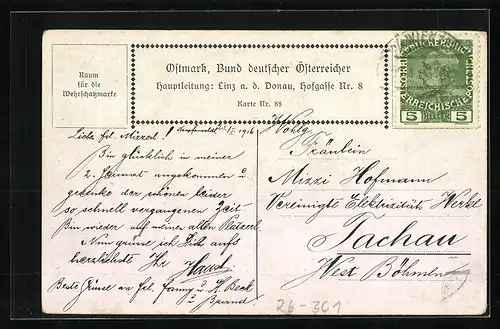 Raum
für die
Wehrschatzmarke
Ostmark, Bund deutscher Österreicher
Hauptleitung: Linz a. d. Donau, Hofgasse Nr. 8
Karte Nr. 88
5 5
1916
Liebe frl. Mizzerl!
Bin glücklich in meiner
2. Heimat angekommen u
gedenke der schönen leider
so schnell vergangenen Zeit
Bin wieder auf meinem alten
Nun grüsse ich Sie aufs
herzlichste Ihr
Beste Grüsse an frl. fanny u. H. Beck
u
Wohlg.
Fräulein
Mizzi Hofmann
Vereinigte Elektrizitäts Werke
Tachau
West Böhmen
26-301